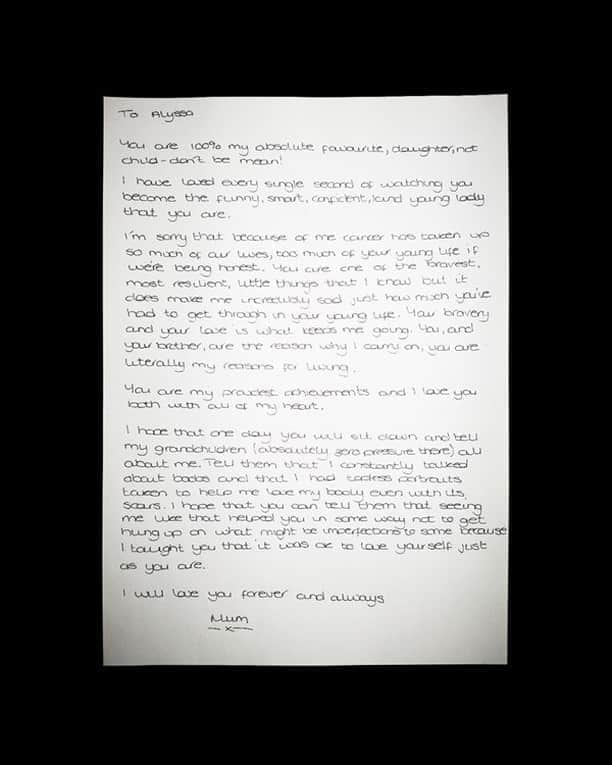 To Alyssa
You are 100% my absolute favourite, daughter, not
child - don't be mean!
I have loved every single second of watching you
become the funny, smart, confident, kind young lady
that you are.
I'm sorry that because of me cancer has taken up
so much of our lives, too much of your young life if
we're being honest. You are one of the bravest,
most resilient, little things that I know but it
does make me incredibly sad just how much you've
had to get through in your young life. Your bravery
and your love is what keeps me going. You, and
your brother, are the reason why I carry on, you are
literally my reasons for living.
You are my proudest achievements and I love you
both with all of my heart.
I hope that one day you will sit down and tell
my grandchildren (absolutely zero pressure there) all
about me. Tell them that I constantly talked
about boobs and that I had topless portraits
taken to help me love my body even with its,
scars. I hope that you can tell them that seeing
me like that helped you in some way not to get
hung up on what might be imperfections to some because
I taught you that it was ok to love yourself just
as you are.
I will love you forever and always
Mum
x